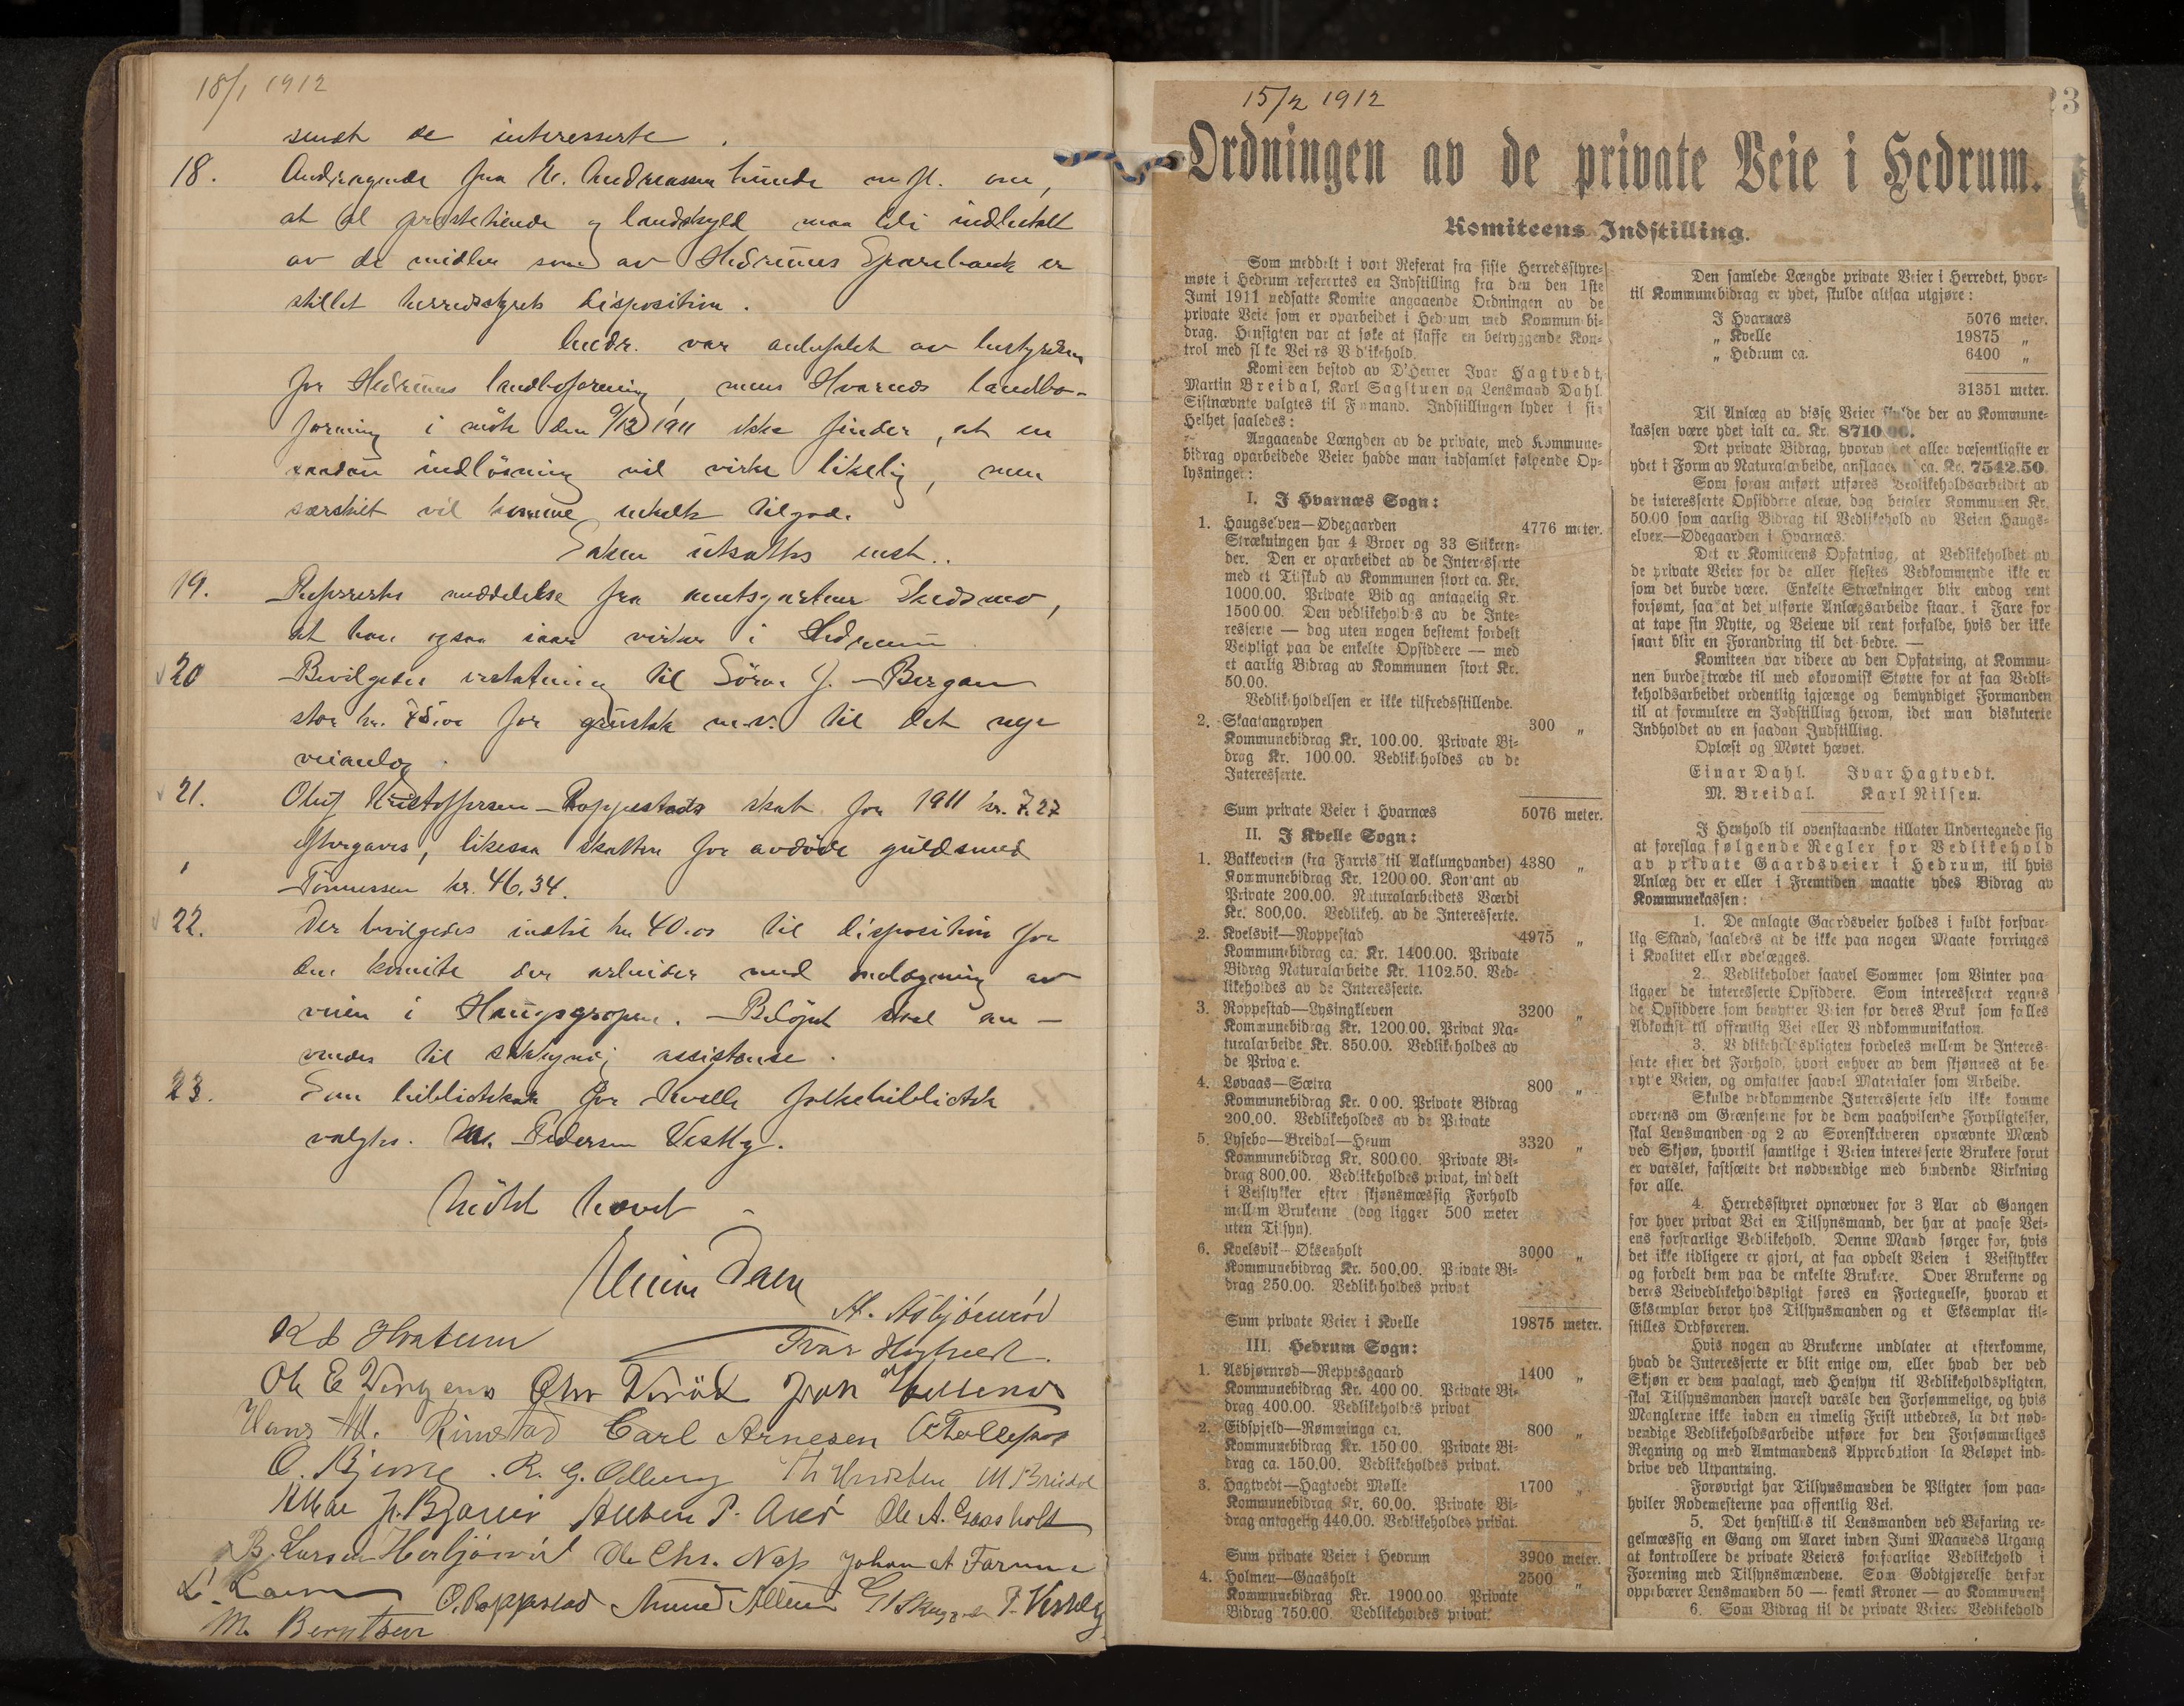 18/1 1912
sendt de interesserte.
18. Andragende fra M. Andreassen Lunde m. fl. om,
at al prestetiende og landskyld maa bli indbetalt
av de midler som av Hedrums Sparebank er
stillet herredsstyrets disposition.
Andr. var anbefalet av bestyrelsen
for Hedrums landboforening, mens Hvarnes landbo-
forening i møte den 9/12 1911 ikke finder, at en
saadan indløsning vil virke likelig, men
særskilt vil komme enkelte tilgode.
Saken utsattes enst..
19. Refererte meddelelse fra amtsgartner Skedsmo,
at han ogsaa iaar virker i Hedrum.
20 Bevilgedes erstatning til Søren J. Bergan
stor kr. 75.00 for grustak m.v. til det nye
veianlæg.
21. Oluf Kristoffersen Roppestads skat for 1911 kr. 7.27
eftergaves, likesaa skatten for avdøde guldsmed
Tønnessen kr. 46.34.
22. Der bevilgedes indtil kr 40.00 til disposition for
den komite der arbeider med omlægning av
veien i Haugsgropen. Beløpet skal an-
vendes til sakkyndig assistanse.
23. Som bibliotekar for Kvelle folkebibliotek
valgtes M. Pedersen Vestby.
Møtet hævet
Einar Dahl
A. Asbjørnrød
K S Hvatum
Ivar Hagtvedt.
Ole E Vergens Chr Virød
Hans M. Rimstad Carl Arnesen
O. Bjerke. R. G. Odberg Th Knudsen M Breidal
Anton P. Ares Ole A. Gaasholt
B. Larsen Herbjørnrød Ole Chr. Nap Johan A Farmen
L. Larsen O. Roppestad Amund Allum P. Vestby
M. Berntsen
15/2 1912
23
Ordningen av de private Veie i Hedrum.
Komiteens Indstilling.
Som meddelt i vort Referat fra siste Herredsstyre-
møte i Hedrum referertes en Indstilling fra den den 1ste
Juni 1911 nedsatte Komite angaaende Ordningen av de
private Veie som er oparbeidet i Hedrum med Kommunebi-
drag. Hensigten var at søke at skaffe en betryggende Kon-
trol med slike Veiers Vedlikehold.
Komiteen bestod av D'Herrer Ivar Hagtvedt,
Martin Breidal, Karl Sagstuen og Lensmand Dahl.
Sistnævnte valgtes til Formand. Indstillingen lyder i sin
Helhet saaledes:
Angaaende Længden av de private, med Kommune-
bidrag oparbeidede Veier hadde man indsamlet følgende Op-
lysninger:
I. I Hvarnæs Sogn:
1. Haugselven—Ødegaarden 4776 meter.
Strækningen har 4 Broer og 33 Stikren-
der. Den er oparbeidet av de Interesserte
med et Tilskud av Kommunen stort ca. Kr.
1000.00. Private Bidrag antagelig Kr.
1500.00. Den vedlikeholdes av de Inte-
resserte — dog uten nogen bestemt fordelt
Veipligt paa de enkelte Opsiddere — med
et aarlig Bidrag av Kommunen stort Kr.
50.00.
Vedlikeholdelsen er ikke tilfredsstillende.
2. Skaatangropen 300 „
Kommunebidrag Kr. 100.00. Private Bi-
drag Kr. 100.00. Vedlikeholdes av de
Interesserte.
Sum private Veier i Hvarnæs 5076 meter.
II. I Kvelle Sogn:
1. Bakkeveien (fra Farris til Aaklungvandet) 4380 „
Kommunebidrag Kr. 1200.00. Kontant av
Private 200.00. Naturalarbeidets Værdi
Kr. 800,00. Vedlikeh. av de Interesserte.
2. Kvelsvik—Roppestad 4975 „
Kommunebidrag ca. Kr. 1400.00. Private
Bidrag Naturalarbeide Kr. 1102.50. Ved-
likeholdes av de Interesserte.
3. Roppestad—Lysingkleven 3200 „
Kommunebidrag Kr. 1200.00. Privat Na-
turalarbeide Kr. 850.00. Vedlikeholdes av
de Private.
4. Løvaas—Sætra 800 „
Kommunebidrag Kr. 0.00. Private Bidrag
200.00. Vedlikeholdes av de Private
5. Lysebo—Breidal—Heum 3320 „
Kommunebidrag Kr. 800.00. Private Bi-
drag 800.00. Vedlikeholdes privat, inddelt
i Veistykker efter skjønsmæssig Forhold
mellem Brukerne (dog ligger 500 meter
uten Tilsyn).
6. Kvelsvik—Oksenholt 3000 „
Kommunebidrag Kr. 500,00. Private Bi-
drag 250.00. Vedlikeholdes privat
Sum private Veier i Kvelle 19875 meter.
III. Hedrum Sogn:
1. Asbjørnrød—Reppesgaard 1400 „
Kommunebidrag Kr. 400 00. Private Bi-
drag 400.00. Vedlikeholdes privat
2. Eidsfjeld—Rømminga ca. 800 „
Kommunebidrag Kr. 150 00. Private Bi-
drag ca. 150.00. Vedlikeholdes privat.
3. Hagtvedt—Hagtvedt Mølle 1700 „
Kommunebidrag Kr. 60.00. Private Bi-
drag antagelig 440.00. Vedlikeholdes privat.
Sum private Veier i Hedrum 3900 meter.
4. Holmen—Gaasholt 2500 „
Kommunebidrag Kr. 1900.00 Private
Bidrag 750.00. Vedlikeholdes privat.
Den samlede Længde private Veier i Herredet, hvor-
til Kommunebidrag er ydet, skulde altsaa utgjøre:
I Hvarnæs 5076 meter.
„ Kvelle 19875 „
„ Hedrum ca. 6400 „
31351 meter.
Til Anlæg av disse Veier skulde der av Kommune-
kassen være ydet ialt ca. Kr. 8710.00.
Det private Bidrag, hvorav det aller væsentligste er
ydet i Form av Naturalarbeide, anslaaes til ca. Kr. 7542.50.
Som foran anført utføres Vedlikeholdsarbeidet av
de interesserte Opsiddere alene, dog betaler Kommunen Kr.
50.00 som aarlig Bidrag til Vedlikehold av Veien Haugs-
elven—Ødegaarden i Hvarnæs.
Det er Komiteens Opfatning, at Vedlikeholdet av
de private Veier for de aller flestes Vedkommende ikke er
som det burde være. Enkelte Strækninger blir endog rent
forsømt, saa at det utførte Anlægsarbeide staar i Fare for
at tape sin Nytte, og Veiene vil rent forfalde, hvis der ikke
snart blir en Forandring til det bedre. —
Komiteen var videre av den Opfatning, at Kommu-
nen burde træde til med økonomisk Støtte for at faa Vedli-
keholdsarbeidet ordentlig igjænge og bemyndiget Formanden
til at formulere en Indstilling herom, idet man diskuterte
Indholdet av en saadan Indstilling.
Oplæst og Møtet hævet.
Einar Dahl. Ivar Hagtvedt.
M. Breidal. Karl Nilsen.
I Henhold til ovenstaaende tillater Undertegnede sig
at foreslaa følgende Regler for Vedlikehold
av private Gaardsveier i Hedrum, til hvis
Anlæg der er eller i Fremtiden maatte ydes Bidrag av
Kommunekassen:
1. De anlagte Gaardsveier holdes i fuldt forsvar-
lig Stand, saaledes at de ikke paa nogen Maate forringes
i Kvalitet eller ødelægges.
2. Vedlikeholdet saavel Sommer som Vinter paa-
ligger de interesserte Opsiddere. Som interesseret regnes
de Opsiddere som benytter Veien for deres Bruk som fælles
Adkomst til offentlig Vei eller Vandkommunikation.
3. Vedlikeholdspligten fordeles mellem de Interes-
serte efter det Forhold, hvori enhver av dem skjønnes at be-
nytte Veien, og omfatter saavel Materialer som Arbeide.
Skulde vedkommende Interesserte selv ikke komme
overens om Grænserne for de dem paahvilende Forpligtelser,
skal Lensmanden og 2 av Sorenskriveren opnævnte Mænd
ved Skjøn, hvortil samtlige i Veien interesserte Brukere forut
er varslet, fastsætte det nødvendige med bindende Virkning
for alle.
4. Herredsstyret opnævner for 3 Aar ad Gangen
for hver privat Vei en Tilsynsmand, der har at paase Vei-
ens forsvarlige Vedlikehold. Denne Mand sørger for, hvis
det ikke tidligere er gjort, at faa opdelt Veien i Veistykker
og fordelt dem paa de enkelte Brukere. Over Brukerne og
deres Veivedlikeholdspligt føres en Fortegnelse, hvorav et
Eksemplar beror hos Tilsynsmanden og et Eksemplar til-
stilles Ordføreren.
Hvis nogen av Brukerne undlater at efterkomme,
hvad de Interesserte er blit enige om, eller hvad der ved
Skjøn er dem paalagt, med Hensyn til Vedlikeholdspligten,
skal Tilsynsmanden snarest varsle den Forsømmelige, og hvis
Manglerne ikke inden en rimelig Frist utbedres, la det nød-
vendige Vedlikeholdsarbeide utføre for den Forsømmeliges
Regning og med Amtmandens Approbation la Beløpet ind-
drive ved Utpantning.
Forøvrigt har Tilsynsmanden de Pligter som paa-
hviler Rodemesterne paa offentlig Vei.
5. Det henstilles til Lensmanden ved Befaring re-
gelmæssig en Gang om Aaret inden Juni Maaneds Utgang
at kontrollere de private Veiers forsvarlige Vedlikehold i
Forening med Tilsynsmændene. Som Godtgjørelse herfor
oppebærer Lensmanden 50 — femti Kroner — av Kommunen.
6. Som Bidrag til de private Veiers Vedlikehold